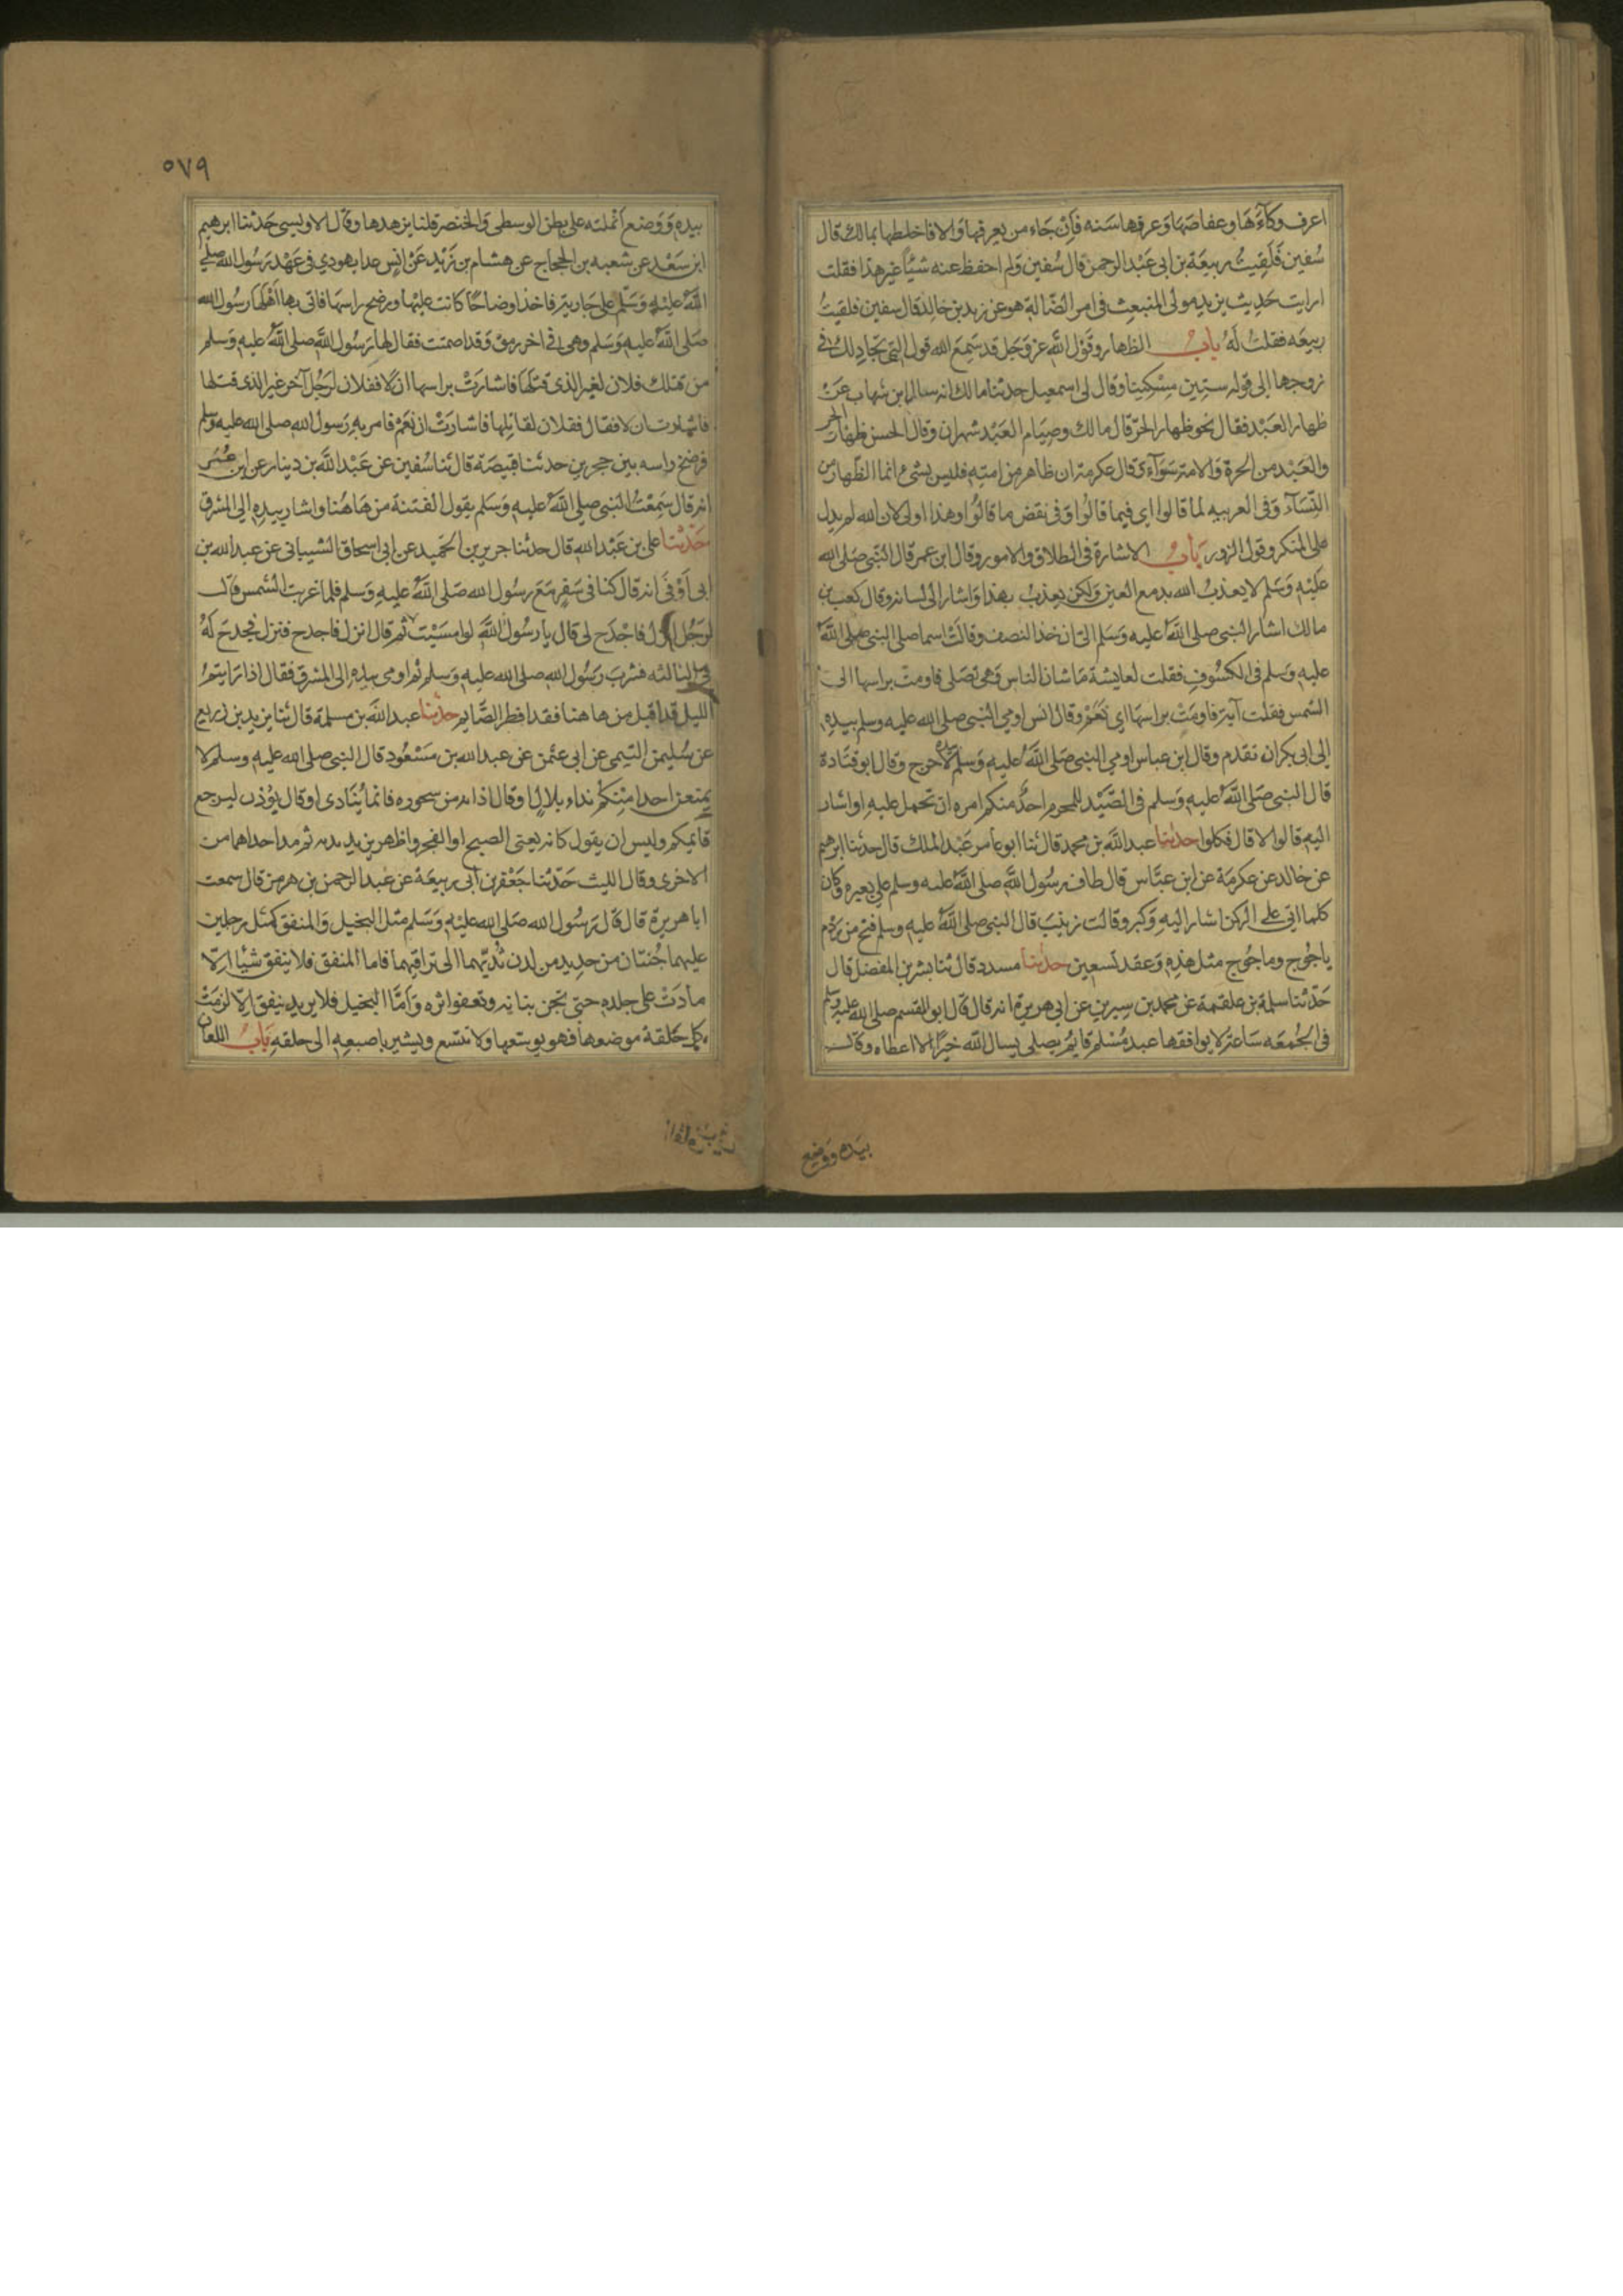 اعرف وكآءَهَا وعفاصَهَا وَعرفها سَنه فَاِنْ جَاء من يعرفها وَالا فاخلطها بمالك قال
سُفين فَلَقِيتُ ربيعَة بن ابى عَبْد الرحمن قال سُفين وَلم احفظ عنه شَيْئاً غير هذا فقلت
ارايت حَدِيث يزيد مولى المنبعِث فى امر الضَّالة هو عن زيد بن خالِد قال سفين فلقيتُ
ربيعَه فقلتُ لَهُ بابُ الظهار وقَوْل الله عز وَجَل قد سَمِعَ الله قول التى تجادِلك فى
زوجها الى قوله ستين مِسْكِينا وقال لى اسمعيل حدثنا مالك انه سال ابن شهاب عَنْ
ظهار العَبْد فقال نحو ظهار الحرّ قال مالك وصِيَام العَبْد شهران وقال الحسن ظهار الحر
والعَبْد من الحرة وَالامة سَوَآء وَقال عكرمة ان ظاهر من امتِهِ فليس بشىء انما الظهار من
النِّسَآء وَفى العربيه لما قالوا اى فيما قالُوا وَفى نقض ما قالُوا وهذا اولى لان الله لم يدل
على المنكر وقول الزور بَابُ الاشارة فى الطلاق والامور وقال ابن عمر قال النبى صَلى الله
عَليْهِ وَسَلم لا يعذبُ الله بدمع العين وَلكن يعذبُ بهذا وَاشار الى لسانه وقال كعب بن
مالك اشار النبى صلى اللهُ عليه وَسَلم الىّ ان خذ النصف وقالَتْ اسما صلى النبى صلى اللهُ
عليه وَسلم فى الكسُوفِ فقلت لعايشة مَا شان الناس وَهى تصَلى فاومت براسها الى
الشمس فقلت آية فاومَتْ براسهَا اى نَعَمْ وقال انس اومى النبى صلى الله عليه وسلم بيدِهِ
الى ابى بكر ان تقدم وقال ابن عباس اومى النبى صَلى اللهُ عليهِ وَسَلم بيده لا حرج وَقال ابو قتَادة
قال النبى صَلى اللهُ عليه وَسلم فى الصَّيْد للمحرم احدٌ منكم امره ان تحمل عليهِ او اشار
اليه قالوا لا قال فكلوا حدثنا عبد الله بن محمد قال ثنا ابو عامر عَبْد الملك قال حدثنا ابرهيم
عن خالد عن عكرمَة عن ابن عبَّاس قال طاف رسُول الله صلى اللهُ عليه وسلم على بعيره وكان
كلما اتى على الركن اشار اليهِ وَكبر وقالت زينبَ قال النبى صلى اللهُ عليه وسلم فتح من رَدْم
ياجُوج وماجُوج مثل هذِهِ وَعقد تسعين حدثنا مسدد قال ثنا بشر بن المفضل قال
حَدّثنا سلمة بن علقمة عن محمد بن سِيرين عن ابى هريرة انه قال قال ابو القسم صلى الله عليه وسلم
فى الجُمعَه سَاعة لا يوافقها عبد مُسْلم قايمٌ يصلى يسال الله خيرًا الا اعطاه وقال
بيده ووضع
٥٧٩
بيدهِ وَوَضع اَنملته على بطن الوسطى وَالخنصر قلنا يزهدها وقال الاويسى حَدثنا ابرهيم
ابن سَعْد عن شعبه بن الحجاج عن هشام بن زَيْد عَنْ انس عدا يهودى فى عَهْد رَسُول الله صلى
اللهُ عليْهِ وَسَلّم على جَارية فاخذ اوضاحًا كانت عليْها ورضخ راسَها فاتى بها اَهْلهَا رسُول الله
صَلى اللهُ عليهِ وَسَلم وهى فى اخر رمق وَقد اصمتت فقال لها رَسُول اللهِ صلى اللهُ عليهِ وَسلم
من قتلك فلان لغير الذى قتلهَا فاشارَتْ براسها ان لا فقلان لرَجُل آخر غير الذى قتلها
فاشارت ان لا فقال ففلان لقاتلها فاشارَتْ ان نعَمْ فامر بهِ رَسول الله صلى الله عليه وَسلم
فرضخ راسه بين حجرين حدثنا قبيصَة قال ثنا سُفين عن عَبْد الله بن دينار عن ابن عُمَر
انه قال سَمِعْتُ النبى صلى اللهُ عليهِ وَسَلم يقول الفتنة من هَاهُنا واشار بيدِهِ الى المشرق
حَدَّثنا على بن عَبْد الله قال حدثنا جرير بن الحَميد عن ابى اسحاق الشيبانى عن عبد الله بن
ابى اَوْفَى انه قال كنا فى سَفر مَعَ رسُول الله صَلى اللهُ عليهِ وَسلم فلما غربت الشمس قال
لرَجُل انزل فاجْدَح لى قال يا رسُول اللهِ لوا مسَيْت ثم قال انزل فاجدح فنزل فجدحَ لَهُ
فى الثالثه فشربَ رَسُول الله صلى الله عليه وَسلم ثم اومى بيده الى المشرق فقال اذا رَايتمُ
الليل قد اقبل من هاهنا فقد افطر الصَّايم حدثنا عبد الله بن مسلمة قال ثنا يزيد بن زريع
عن سُليمن التيمى عن ابى عثمن عن عبد الله بن مَسْعُود قال النبى صلى الله عليه وسلم لا
يمنعن احدا مِنكمْ نداء بلال او قال اذانه من سحوره فانما يُنَادى او قال يوُذن ليرجع
قايمكم وليس ان يقول كانه يعنى الصبح او الفجر واظهر يزيد يديه ثم مد احداهما من
الاخرى وقال الليث حَدّثنا جَعْفر بن ابى ربيعَة عن عبد الرحمن بن هرمز قال سمعت
ابا هريرة قال قال رَسُول الله صَلى الله عليْهِ وَسَلم مثل البخيل وَالمنفق كمثل رجلين
عليهما جُبتان من حدِيد من لدن ثديّيهما الى تراقيهما فاما المنفق فلا ينفق شيًا الّا
مادَتْ على جلدهِ حتى تجن بنانه وتعفوا اثره وَاَمَّا البخيل فلا يريد ينفق اِلّا لزمَتْ
كل حَلقة موضعها فهو يوسعها ولا تتسع ويشير باصبعه الى حلقهِ بَابُ اللعان